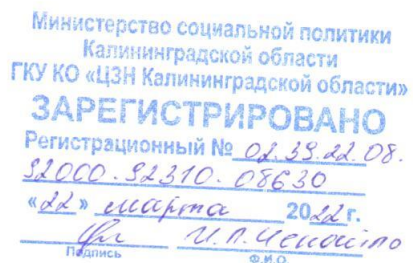 Министерство социальной политики
Калининградской области
ГКУ КО «ЦЗН Калининградской области»
ЗАРЕГИСТРИРОВАНО
Регистрационный № 02.39.22.08.
92000.92310.08630
«22» марта 2022 г.
Подпись Ф.И.О